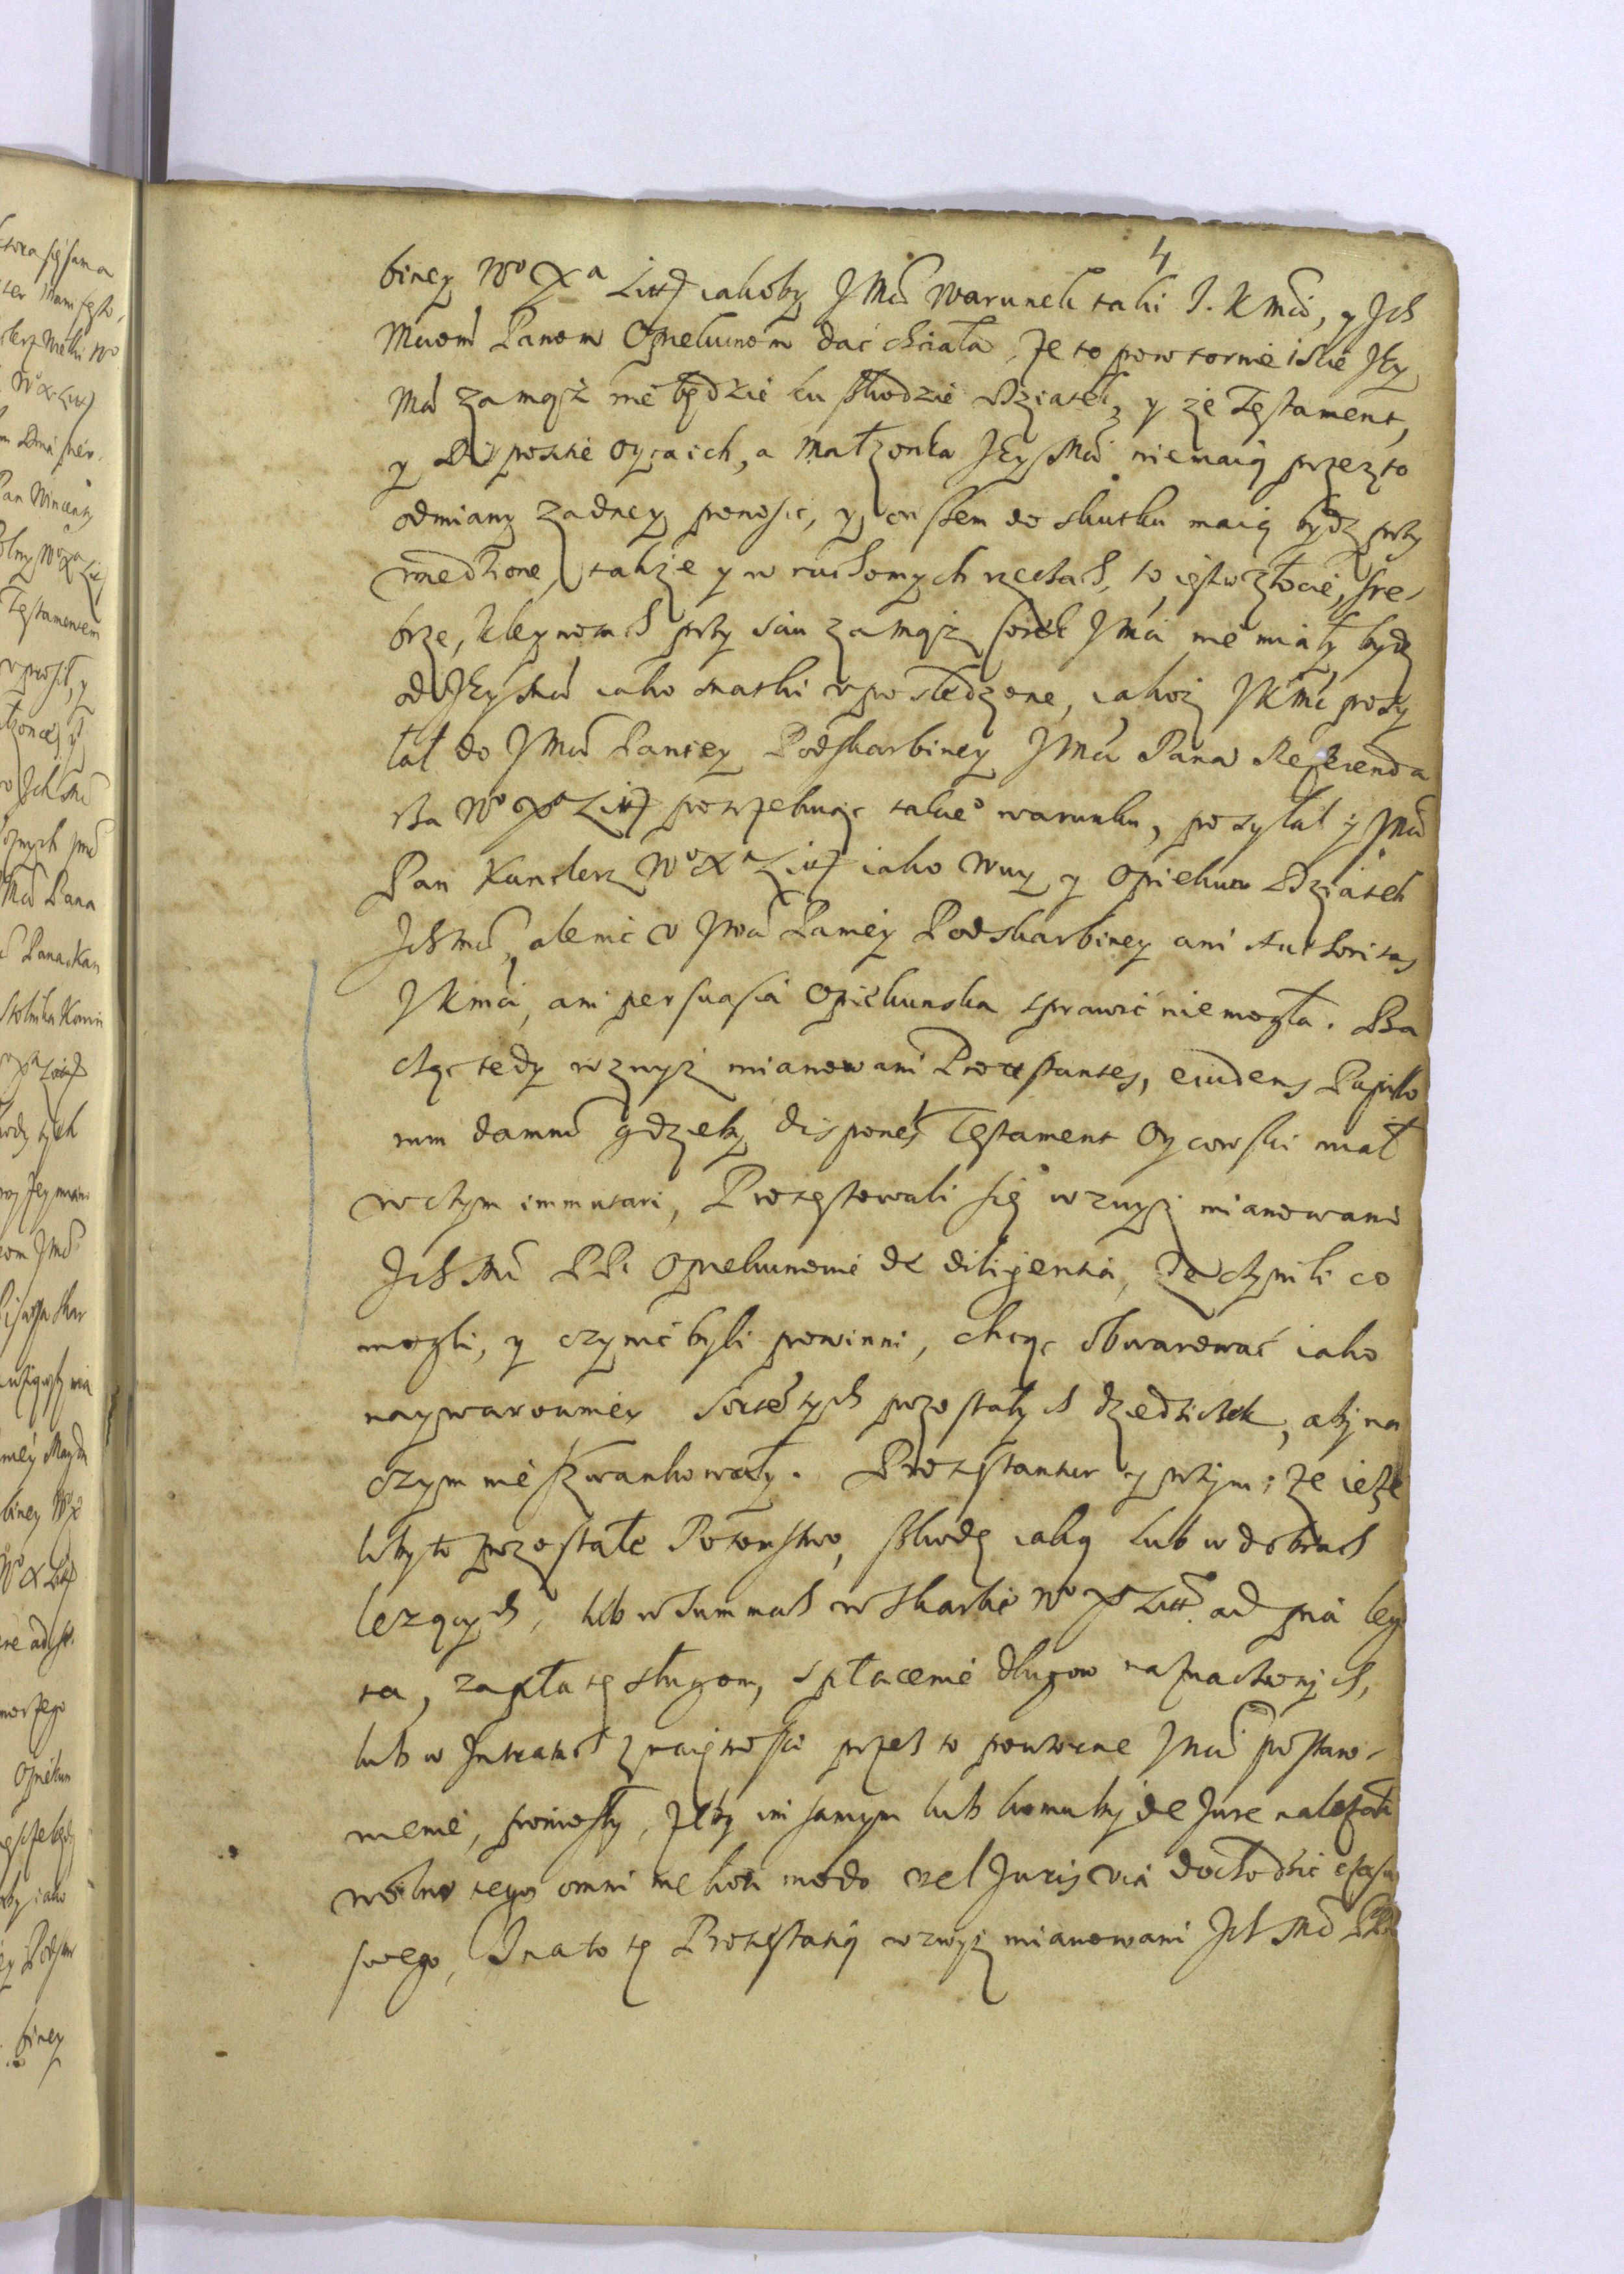 4
biney Wo Xa Litt iakoby JMci warunek taki J. K Mci, y Ich
Mciom Panom Opiekunom dać chciała, że to powtornie iście Jey
Mci zamąż nie będzie ku szkodzie dziatek, y że Testament,
y Dispositie oyca ich, a małżonka Jey Mci nie maią przez to
odmiany żadney ponosic, y owszem do skutku maią bydz przy
wiedzione, także y w ruchomych rzeczach, to iest w złocie, sre-
brze, kleynotach przy iściu zamąż JMci nie miały bydz
od Jey Mci iako matki uposledzone, iakoż JKMc posy
łał do JMci Paniey Podskarbiney JMci Pana Referenda
rza Wo Xa Litt potrzebuiąc takieo warunku, posyłał y JMc
Pan Kanclerz Wo Xa Litt iako wuy y opiekun Dziatek
Ich Mci, ale nic u JMci Paniey Podskarbiney ani Authoritas
JKMci, ani persuasia opiekunska sprawić nie mogła. Ba
cząc tedy wzwyż mianowani Protestantes, euidens Pupillo
rum damnum gdzieby disponens Testament Oycowski miał
w czym immutari, Protestowali się wzwyż mianowani
Ich Mc PP. Opiekunowie de diligentia, że czynili co
mogli, y czynić byli powinni, chcąc obwarować iako
naywarowniey tych pozostałych dziedziczek, aby na
czym nie szwankowały. Protestantur y przytym; że ieże
liby to pozostałe Potomstwo, szkodę iaką lub w dobrach
lezących, lub w summach w skarbie Wo Xa Litt. ad pia lega
ta, zapłatę sługom, spłacenie długow naznaczonych,
lub w Intratach z maiętności przez to powtorne JMci postano-
wienie, poniosły, żeby im samym lub komuby de Jure należało
wolno tego omni meliori modo vel Juris via dochodzić
swego, I na to tę Protestatią wzwyż mianowani Ich Mc PP.